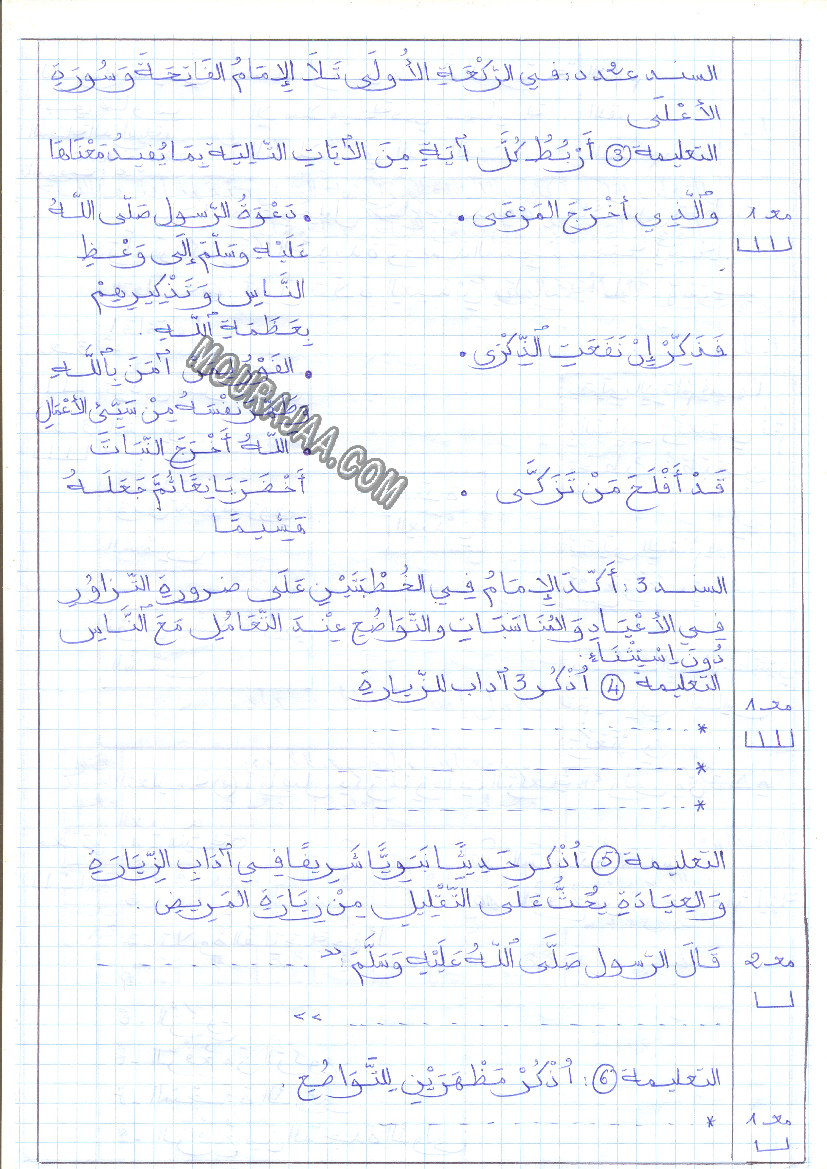 السند عدد 2: في الرَّكْعَةِ الأُولَى تَلَا الإِمَامُ الفَاتِحَةَ وَسُورَةِ
الأَعْلَى
التعليمة ③ أَرْبُطُ كُلَّ آيَةٍ مِنَ الآيَاتِ التَّالِيَةِ بِمَا يُفِيدُ مَعْنَاهَا
مع 1
وَالَّذِي أَخْرَجَ المَرْعَى •
• دَعْوَةُ الرَّسُولِ صَلَّى اللَّهُ
عَلَيْهِ وَسَلَّمَ إِلَى وَعْظِ
النَّاسِ وَتَذْكِيرِهِمْ
بِعَظَمَةِ اللَّهِ.
فَذَكِّرْ إِنْ نَفَعَتِ الذِّكْرَى •
• آمَنَ بِاللَّهِ
نَفْسَهُ مِنْ سَيِّئِ الأَعْمَالِ
• اللَّهُ أَخْرَجَ النَّبَاتَ
قَدْ أَفْلَحَ مَنْ تَزَكَّى •
أَخْضَرَ يَانِعًا ثُمَّ جَعَلَهُ
هَشِيمًا
MOURAJAA.COM
السند 3: أَكَّدَ الإِمَامُ فِي الخُطْبَتَيْنِ عَلَى ضرورةِ التَّزَاوُرِ
فِي الأَعْيَادِ وَالمُنَاسَبَاتِ والتَّوَاضُعِ عِنْدَ التَّعَامُلِ مَعَ النَّاسِ
دُونَ اسْتِثْنَاءٍ.
التعليمة ④ أُذْكُرْ 3 آداب للزّيارةِ
مع 1
*
*
*
التعليمة ⑤ أُذْكر حَدِيثًا نَبَوِيًّا شَرِيفًا فِي آدَابِ الزِّيَارَةِ
وَالعِيَادَةِ يَحُثُّ عَلَى التَّقْلِيلِ مِنْ زِيَارَةِ المَرِيضِ.
مع 2
قَالَ الرّسول صَلَّى اللَّهُ عَلَيْهِ وَسَلَّمَ: "
>>
التعليمة ⑥: أُذْكُرْ مَظْهَرَيْنِ لِلتَّوَاضُعِ.
مع 1
*